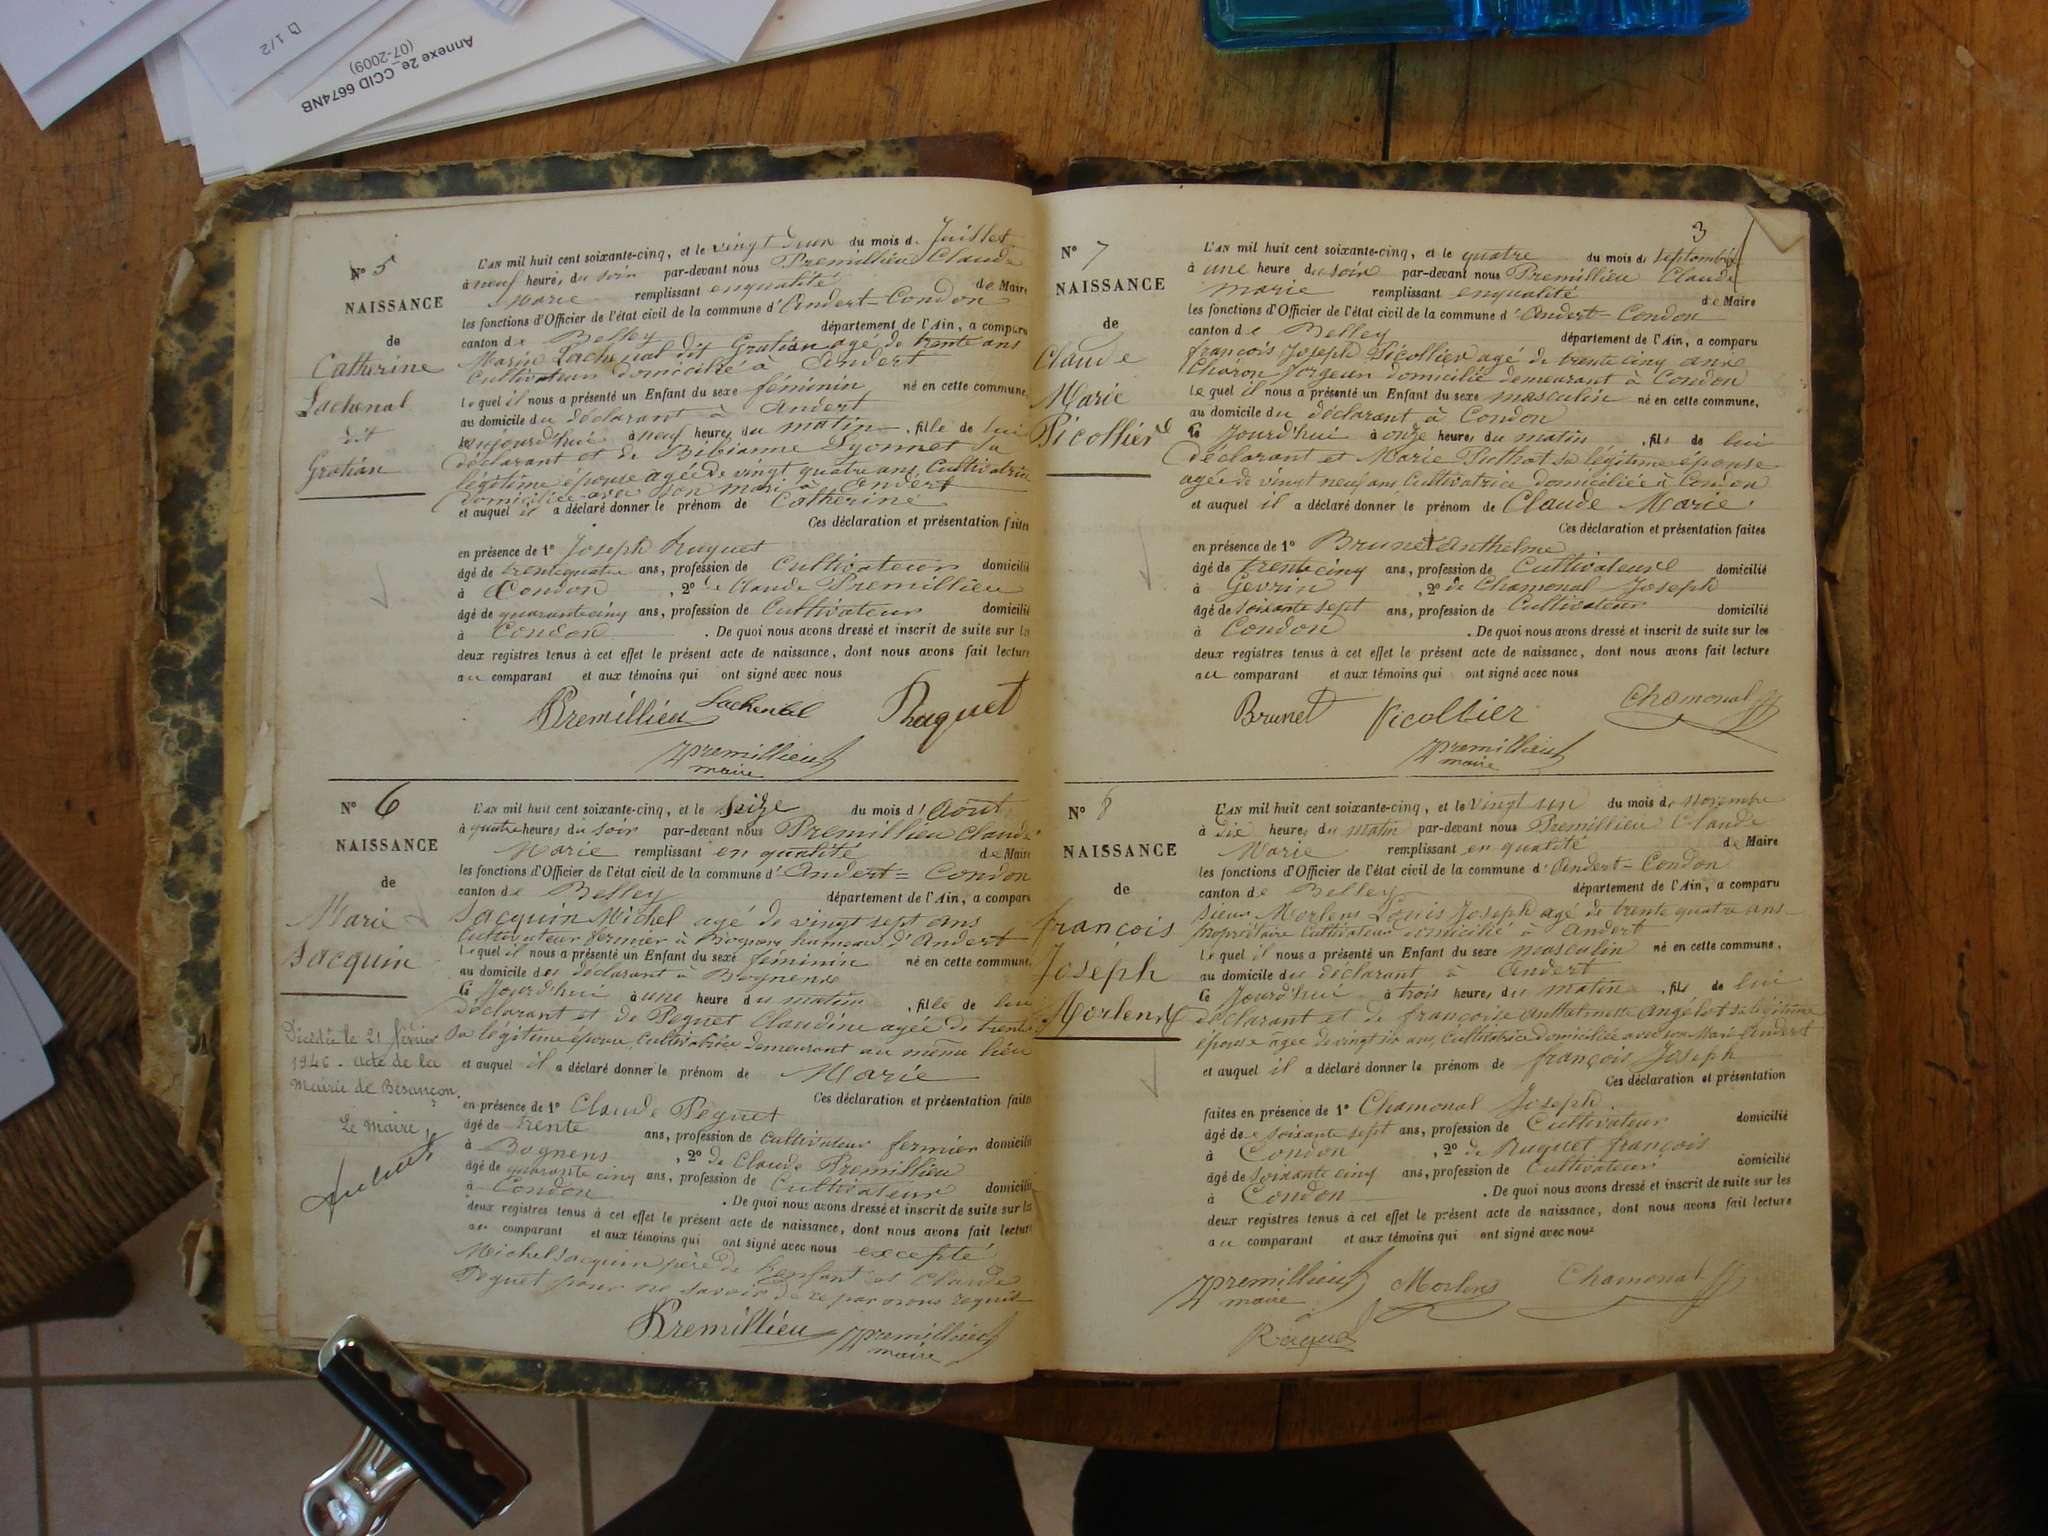 D 1/2
Annexe 2e_CCID 6674NB
(07-2009)
N° 5
NAISSANCE
de
Catherine
Lachenal
dit
Gratian
L'AN mil huit cent soixante-cinq, et le vingt d'eux du mois de Juillet
à neuf heures du soir par-devant nous Premillieu Claude
Marie remplissant enqualité de Maire
les fonctions d'Officier de l'état civil de la commune d'Andert-Condon
canton de Belley département de l'Ain, a comparu
Marie Lachenal dit Gratian agé de trente ans
Cultivateur domicilié à Andert
Lequel il nous a présenté un Enfant du sexe féminin né en cette commune,
au domicile du déclarant à Andert
aujourd'hui à neuf heures du matin, fille de lui
déclarant et de Bibianne Lyonnet sa
légitime épouse agée de vingt quatre ans Cultivatrice
domiciliée avec son mari à Andert
et auquel il a déclaré donner le prénom de Catherine
Ces déclaration et présentation faites
en présence de 1° Joseph Ruguet
âgé de trente quatre ans, profession de Cultivateur domicilié
à Condon, 2° de Claude Premillieu
âgé de quarante cinq ans, profession de Cultivateur domicilié
à Condon. De quoi nous avons dressé et inscrit de suite sur les
deux registres tenus à cet effet le présent acte de naissance, dont nous avons fait lecture
au comparant et aux témoins qui ont signé avec nous
Premillieu Lachenal Ruguet
Premillieu
maire
N° 6
NAISSANCE
de
Marie
Jacquin
Décédée le 21 février
1946. acte de la
Mairie de Besançon.
Le Maire,
L'AN mil huit cent soixante-cinq, et le seize du mois d'Août
à quatre heures du soir par-devant nous Premillieu Claude
Marie remplissant en qualité de Maire
les fonctions d'Officier de l'état civil de la commune d'Andert-Condon
canton de Belley département de l'Ain, a comparu
Jacquin Michel agé de vingt sept ans
Cultivateur fermier à Bognens hameau d'Andert
Lequel il nous a présenté un Enfant du sexe féminin né en cette commune,
au domicile du déclarant à Bognens
Ce Jourd'hui à une heure du matin, fille de lui
déclarant et de Peguet Claudine agée de trente
sa légitime épouse, Cultivatrice demeurant au même lieu
et auquel il a déclaré donner le prénom de Marie
Ces déclaration et présentation faites
en présence de 1° Claude Peguet
âgé de trente ans, profession de cultivateur fermier domicilié
à Bognens, 2° de Claude Premillieu
âgé de quarante cinq ans, profession de Cultivateur domicilié
à Condon. De quoi nous avons dressé et inscrit de suite sur les
deux registres tenus à cet effet le présent acte de naissance, dont nous avons fait lecture
au comparant et aux témoins qui ont signé avec nous excepté
Michel Jacquin père de l'enfant et Claude
Peguet pour ne savoir de ce par nous requis
Premillieu Premillieu
maire
3
N° 7
NAISSANCE
de
Claude
Marie
Picollier
L'AN mil huit cent soixante-cinq, et le quatre du mois de septembre
à une heure du soir par-devant nous Premillieu Claude
marie remplissant enqualité de Maire
les fonctions d'Officier de l'état civil de la commune d'Andert-Condon
canton de Belley département de l'Ain, a comparu
françois Joseph Picollier agé de trente cinq ans
Charon forgeur domicilié demeurant à Condon
Lequel il nous a présenté un Enfant du sexe masculin né en cette commune,
au domicile du déclarant à Condon
Ce Jourd'hui à onze heures du matin, fils de lui
déclarant et Marie Puthot sa légitime épouse
agée de vingt neuf ans Cultivatrice domiciliée à Condon
et auquel il a déclaré donner le prénom de Claude Marie.
Ces déclaration et présentation faites
en présence de 1° Brunet Anthelme
âgé de trente cinq ans, profession de Cultivateur domicilié
à Gevrin, 2° de Chamonal Joseph
âgé de soixante sept ans, profession de Cultivateur domicilié
à Condon. De quoi nous avons dressé et inscrit de suite sur les
deux registres tenus à cet effet le présent acte de naissance, dont nous avons fait lecture
au comparant et aux témoins qui ont signé avec nous
Brunet Picollier Chamonal
Premillieu
maire
N° 8
NAISSANCE
de
françois
Joseph
Morlens
L'AN mil huit cent soixante-cinq, et le vingt un du mois de novembre
à dix heures du matin par-devant nous Premillieu Claude
Marie remplissant en qualité de Maire
les fonctions d'Officier de l'état civil de la commune d'Andert-Condon
canton de Belley département de l'Ain, a comparu
sieur Morlens Louis Joseph agé de trente quatre ans
propriétaire Cultivateur domicilié à Andert
Lequel il nous a présenté un Enfant du sexe masculin né en cette commune,
au domicile du déclarant à Andert
Ce Jourd'hui à trois heures du matin, fils de lui
déclarant et de françoise Anthelmette Angelot sa légitime
épouse agée de vingt six ans, Cultivatrice domiciliée avec son Mari Andert
et auquel il a déclaré donner le prénom de françois Joseph
Ces déclaration et présentation
faites en présence de 1° Chamonal Joseph
âgé de soixante sept ans, profession de Cultivateur domicilié
à Condon, 2° de Ruguet françois
âgé de soixante cinq ans, profession de Cultivateur domicilié
à Condon. De quoi nous avons dressé et inscrit de suite sur les
deux registres tenus à cet effet le présent acte de naissance, dont nous avons fait lecture
au comparant et aux témoins qui ont signé avec nous
Premillieu Morlens Chamonal
maire
Ruguet